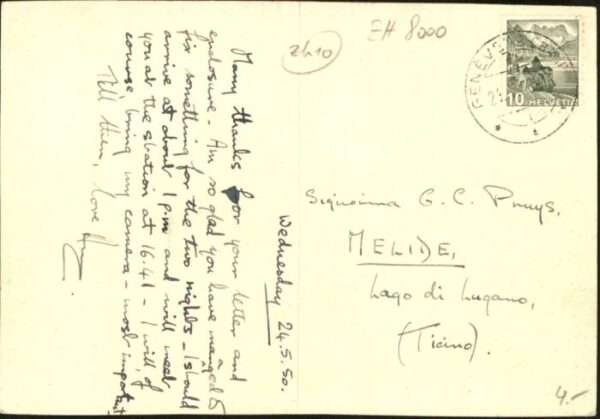 EH 8000
2410
GENÈVE
10 HELVETIA
Wednesday 24.5.50.
Many thanks for your letter and
enclosure. Am so glad you have managed to
fix something for the two nights - I should
arrive at about 1 p.m and will meet
you at the station at 16.41 - I will, of
course bring my camera - most important
Till then, love
Signorina G. C. Pruys,
MELIDE,
Lago di Lugano,
(Ticino).
4.-